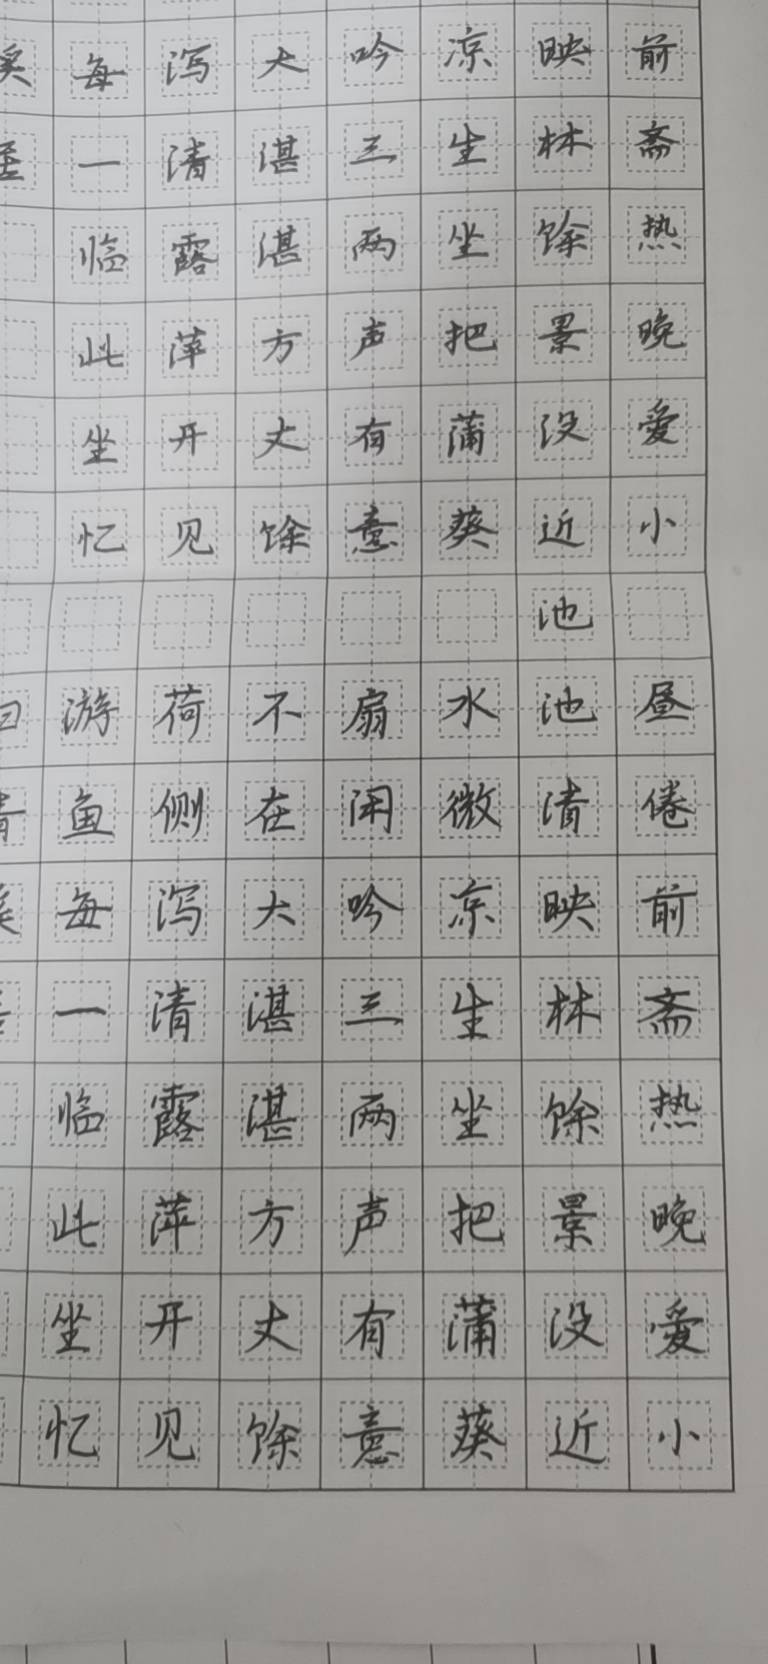 前斋热晚爱小 昼倦前斋热晚爱小
映林馀景没近池池清映林馀景没近
凉生坐把蒲葵 水微凉生坐把蒲葵
吟三两声有意 扇闲吟三两声有意
大湛湛方丈馀 不在大湛湛方丈馀
泻清露萍开见 荷侧泻清露萍开见
每一临此坐忆 游鱼每一临此坐忆